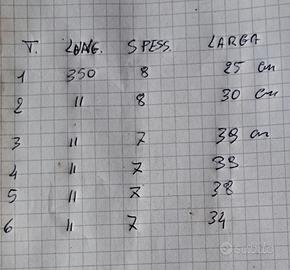 T. LUNG. SPESS. LARGA
1 350 8 25 cm
2 " 8 30 cm
3 " 7 39 cm
4 " 7 39
5 " 7 38
6 " 7 34
subito